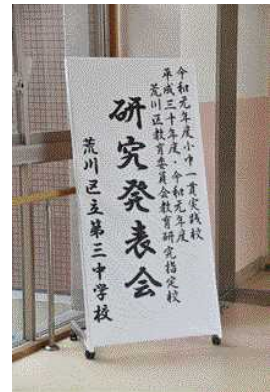 令和元年度小中一貫実践校
平成三十年度・令和元年度
荒川区教育委員会教育研究指定校
研究発表会
荒川区立第三中学校